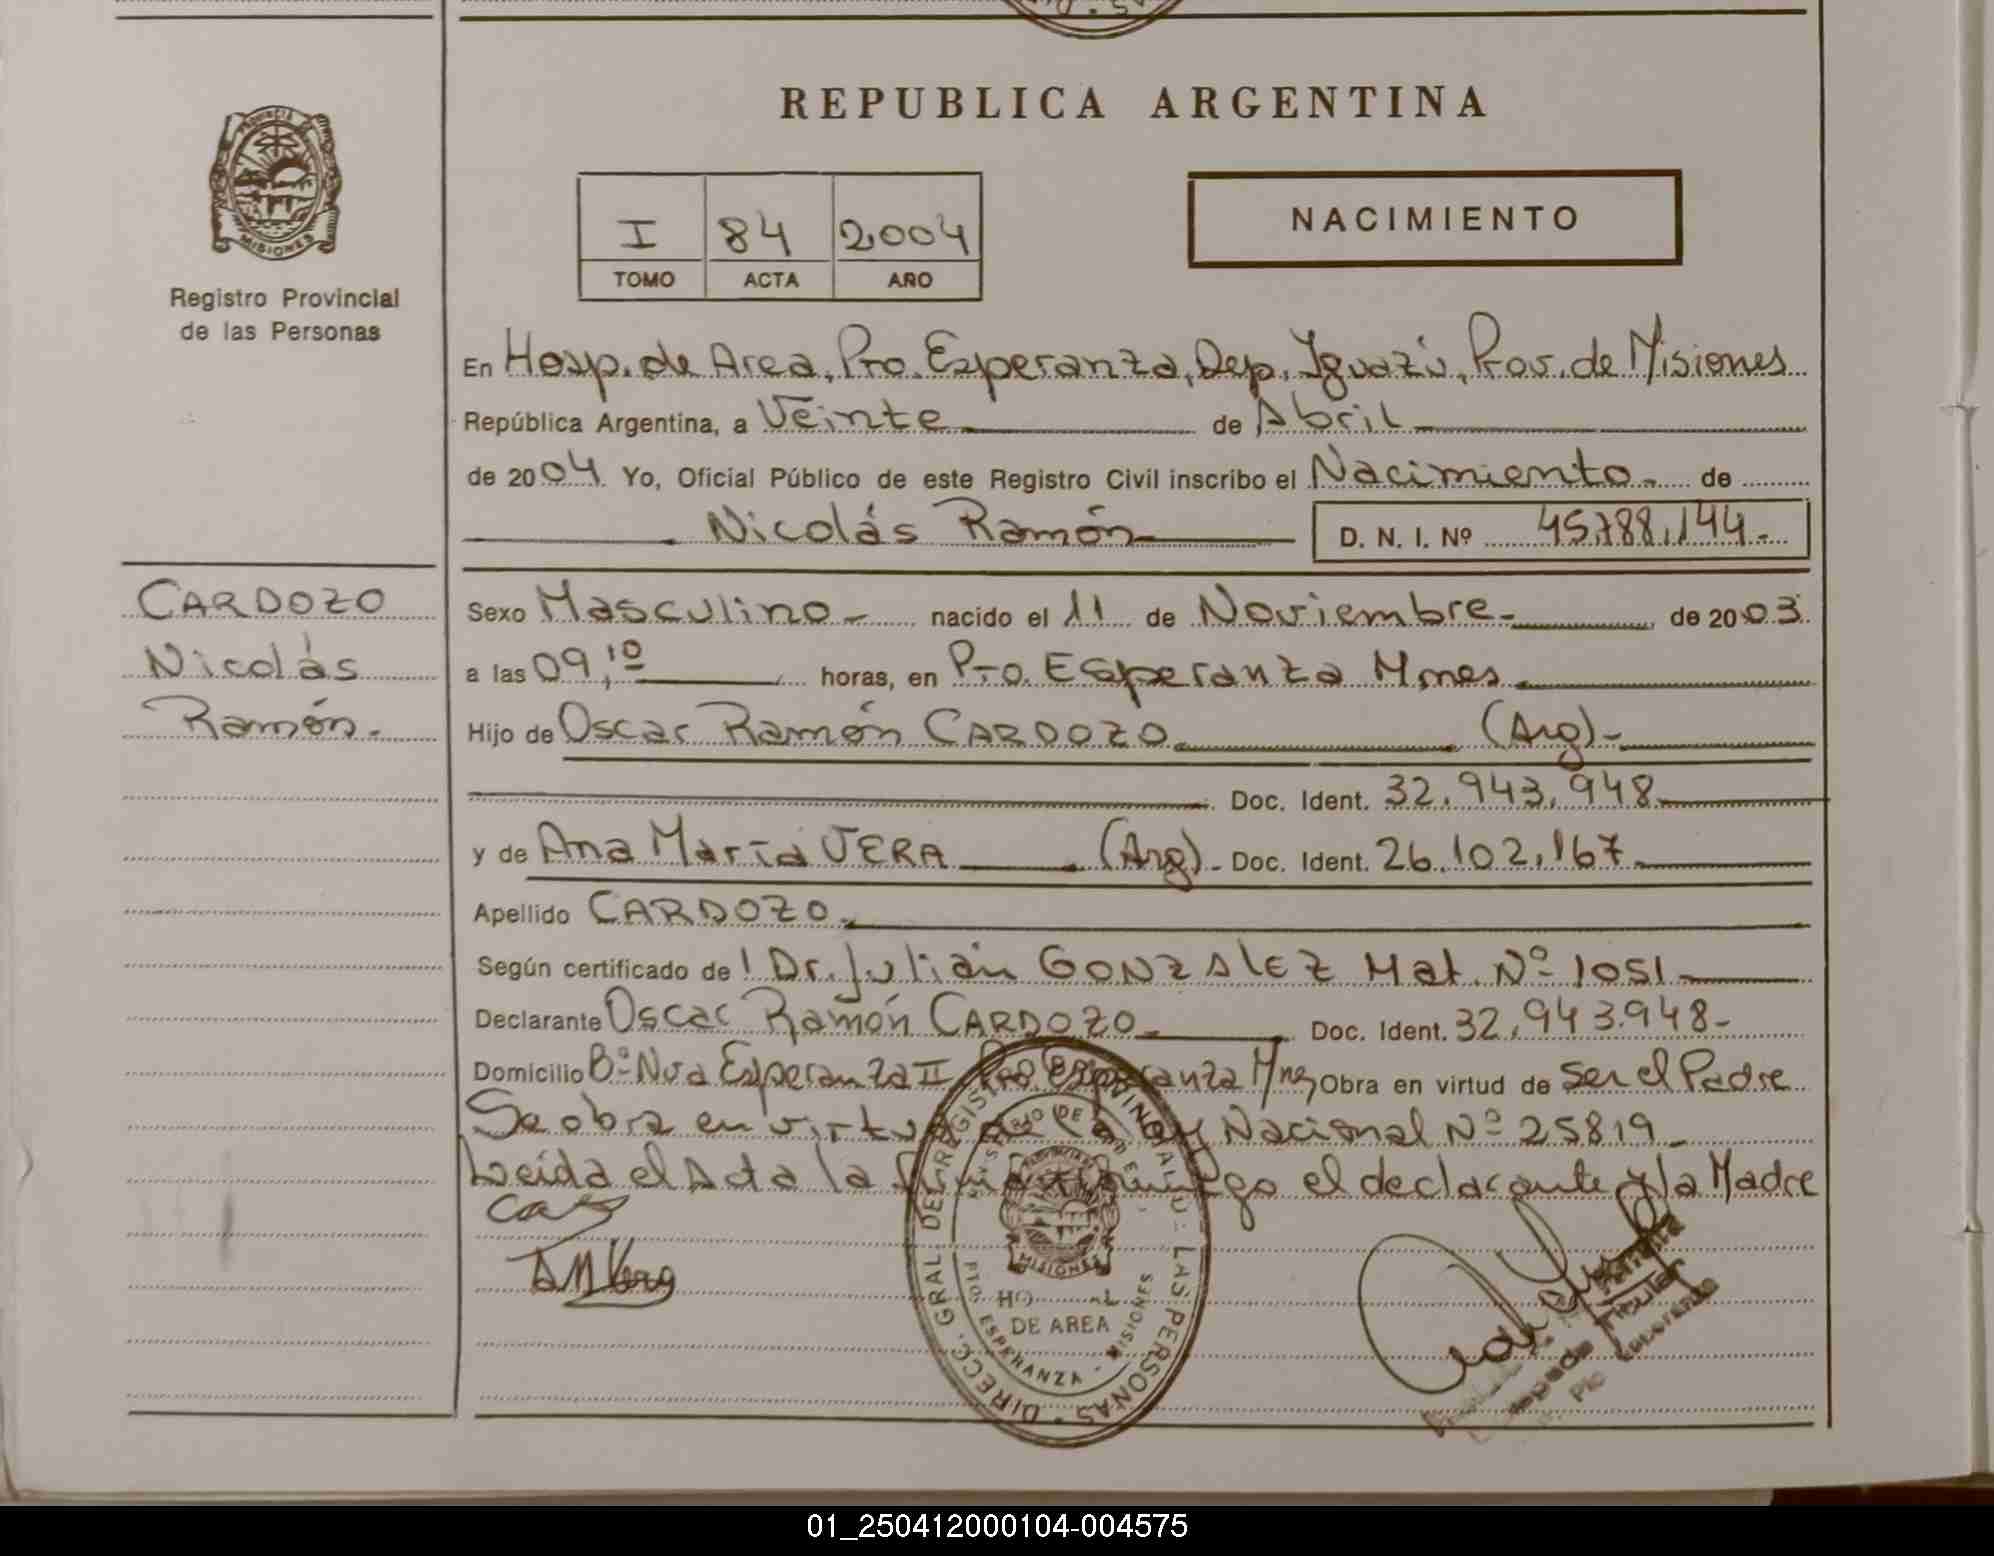 REPUBLICA ARGENTINA
MISIONES
Registro Provincial
de las Personas
I 84 2004
TOMO ACTA AÑO
NACIMIENTO
En Hosp. de Area, Pto. Esperanza, Dep. Iguazú, Prov. de Misiones
República Argentina, a Veinte de Abril
de 2004 Yo, Oficial Público de este Registro Civil inscribo el Nacimiento de
Nicolás Ramón D. N. I. Nº 45.788.144.-
CARDOZO
Nicolás
Ramón.
Sexo Masculino nacido el 11 de Noviembre de 2003
a las 09,10 horas, en Pto. Esperanza Mnes
Hijo de Oscar Ramón CARDOZO (Arg)-
Doc. Ident. 32.943.948
y de Ana María VERA (Arg)- Doc. Ident. 26.102.167
Apellido CARDOZO
Según certificado de Dr. Julián GONZALEZ Mat. Nº 1051
Declarante Oscar Ramón CARDOZO Doc. Ident. 32.943.948-
Domicilio Bº Nva Esperanza II Pto Esperanza Mnes Obra en virtud de ser el Padre
Se obra en virtud de la Ley Nacional Nº 25819
Leida el Acta la firma conmigo el declarante y la Madre
DIRECC. GRAL DEL REGISTRO PROVINCIAL DE LAS PERSONAS
MISIONES
DE AREA
PTO. ESPERANZA - MISIONES
01_250412000104-004575